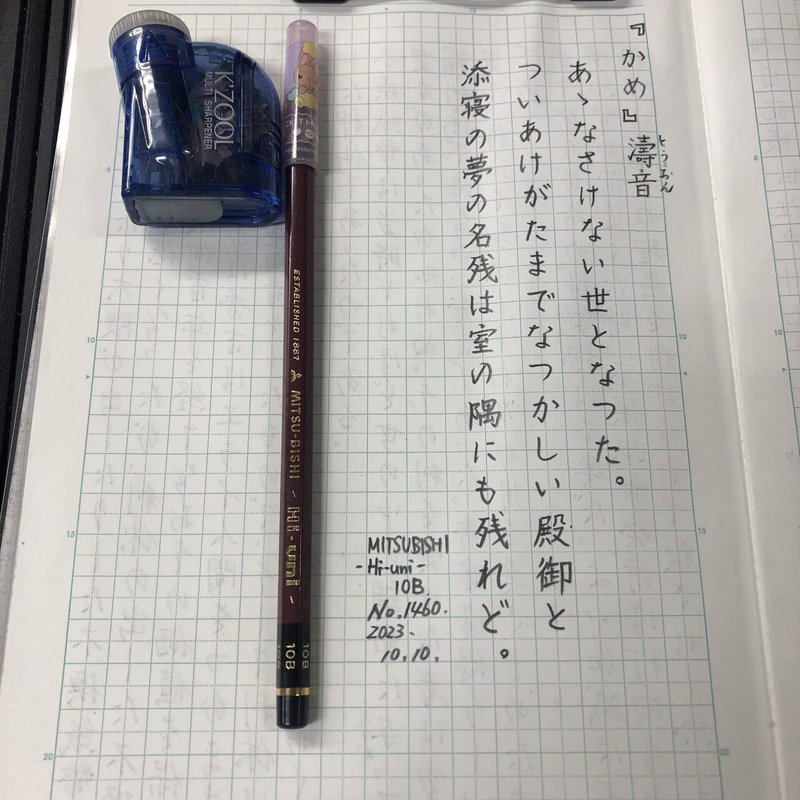 『かめ』濤音
とうおん
あゝなさけない世となつた。
ついあけがたまでなつかしい殿御と
添寝の夢の名残は室の隅にも残れど。
MITSUBISHI
-Hi-uni-
10B
No.1460.
2023.
10.10.
K'ZOOL
MULTI SHARPENER
ESTABLISHED 1887 MITSU-BISHI ~ Hi-uni ~
10B
10B
5
10
15
20
5
10
15
20
5
10